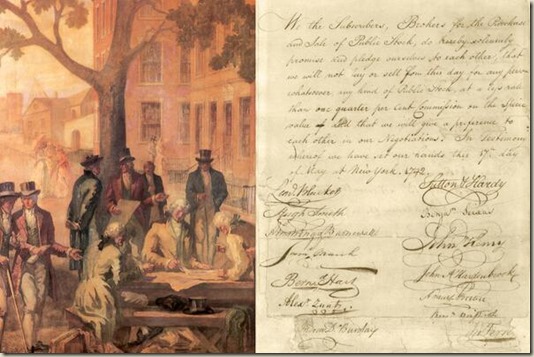 We the Subscribers, Brokers for the Purchase
and Sale of Public Stock, do hereby solemnly
promise and pledge ourselves to each other, that
we will not buy or sell from this day for any person
whatsoever, any kind of Public Stock, at a less rate
than one quarter per Cent Commission on the Specie
value & that we will give a preference to
each other in our Negotiations. In Testimony
whereof we have set our hands this 17th day
of May at New York. 1792.
Sutton & Hardy
Hugh Smith
Benjn Seixas
Armstrong & Barnewall
John Henry
John A Hardenbrook
Bernd Hart
Alexr Zuntz
Barclay